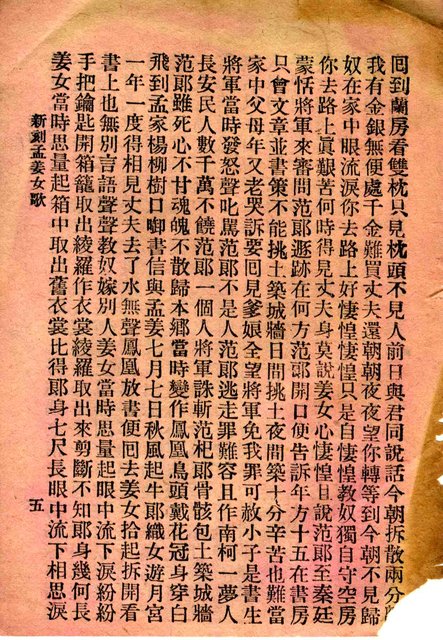 囘到蘭房看雙枕只見枕頭不見人前日與君同說話今朝拆散兩分
我有金銀無便處千金難買丈夫還朝朝夜夜望你轉等到今朝不見歸
奴在家中眼流淚你去路上好悽惶悽惶只是自悽惶教奴獨自守空房
你去路上眞艱苦何時得見丈夫身莫說姜女心悽惶且說范郞至秦廷
蒙恬將軍來審問范郞遯跡在何方范郞開口便告訴年方十五在書房
只會文章並書策不能挑土築城牆日間挑土夜間築十分辛苦也難當
家中父母年又老哭訴要囘見爹娘全望將軍免我罪可赦小子是書生
將軍當時發怒聲叱罵范郞不是人范郞逃走罪難容且作南柯一夢人
長安民人數千萬不饒范郞一個人將軍誅斬范杞郞骨骸包土築城牆
范郞雖死心不甘魂魄不散歸本鄉當時變作鳳凰鳥頭戴花冠身穿白
飛到孟家楊柳樹口啣書信與孟姜七月七日秋風起牛郞織女遊月宮
一年一度得相見丈夫去了水無聲鳳凰放書便囘去姜女拾起拆開看
書上也無別言語聲聲教奴嫁別人姜女當時思量起眼中流下淚紛紛
手把鑰匙開箱籠取出綾羅作衣裳綾羅取出來剪斷不知郞身幾何長
姜女當時思量起箱中取出舊衣裳比得郞身七尺長眼中流下相思淚
新刻孟姜女歌
五